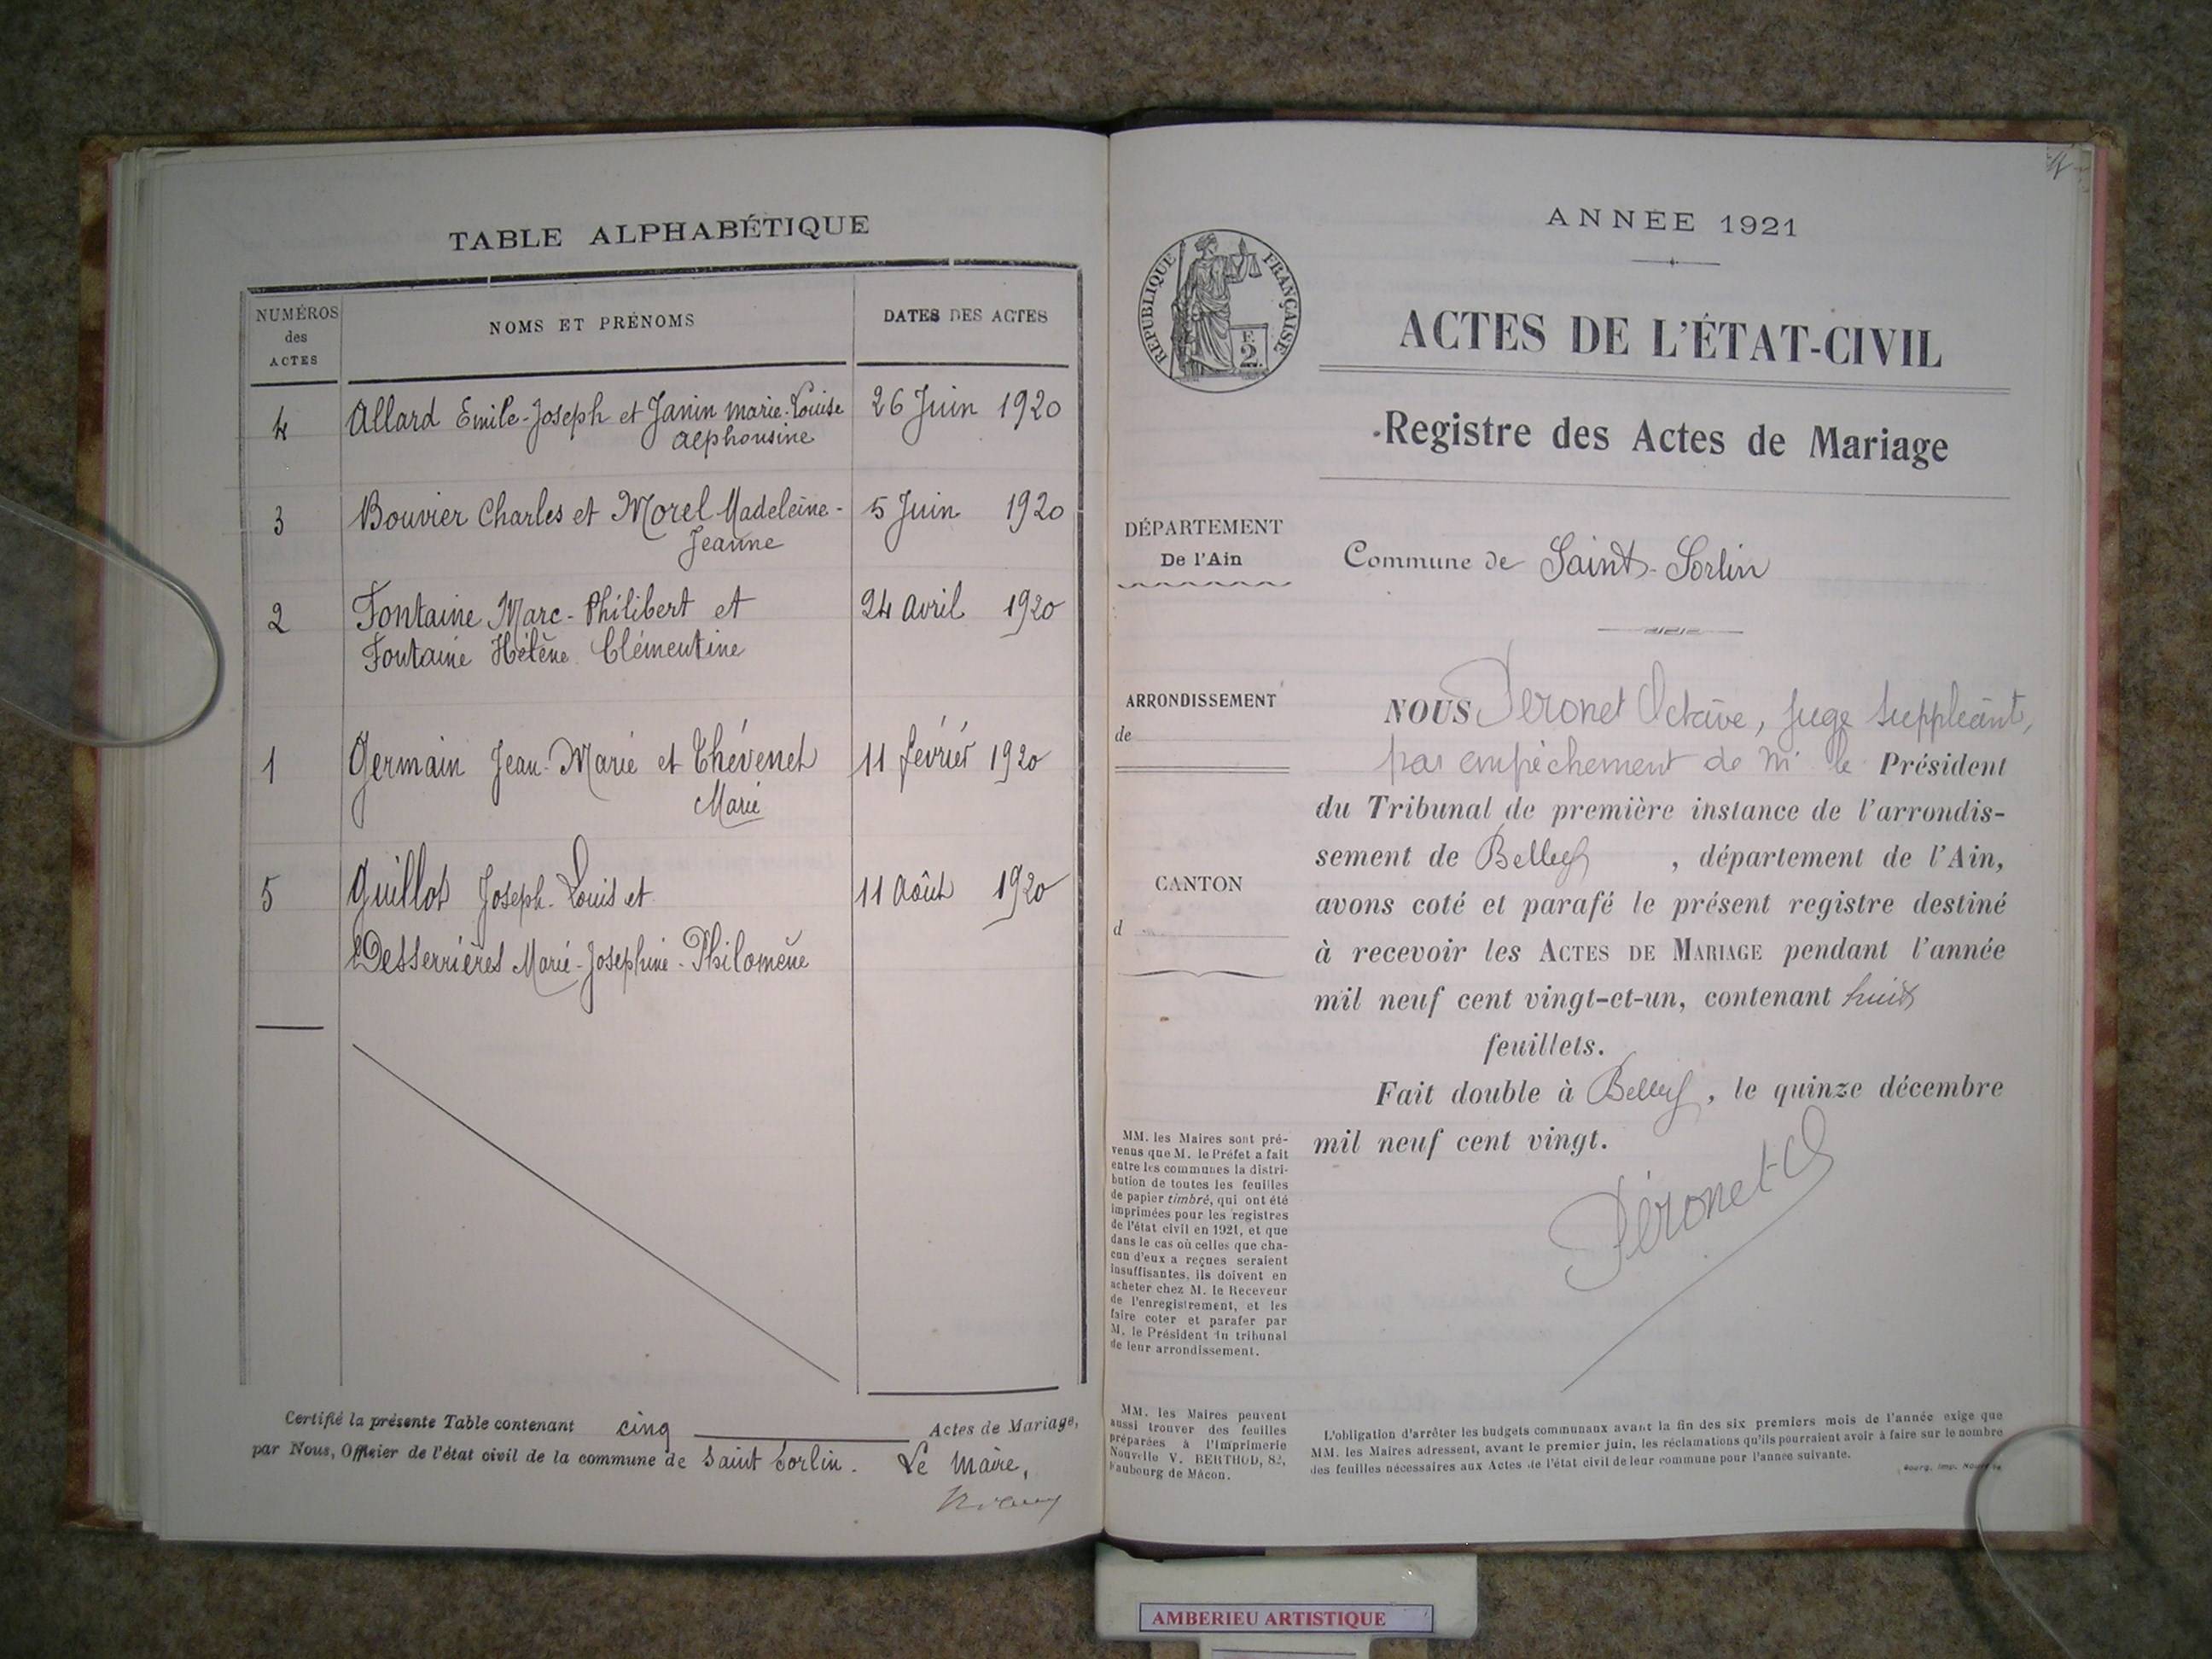 TABLE ALPHABÉTIQUE
NUMÉROS
des
ACTES
NOMS ET PRÉNOMS
DATES DES ACTES
4 Allard Emile-Joseph et Janin Marie-Louise 26 Juin 1920
Alphonsine
3 Bouvier Charles et Morel Madeleine- 5 Juin 1920
Jeanne
2 Fontaine Marc-Philibert et 24 Avril 1920
Fontaine Hélène Clémentine
1 Germain Jean-Marie et Thévenet 11 février 1920
Marie
5 Guillot Joseph-Louis et 11 Août 1920
Desserrières Marie-Joséphine-Philomène
Certifié la présente Table contenant cinq Actes de Mariage,
par Nous, Officier de l'état civil de la commune de Saint Sorlin. Le Maire,
ANNÉE 1921
RÉPUBLIQUE FRANÇAISE
F.
2
ACTES DE L'ÉTAT-CIVIL
Registre des Actes de Mariage
DÉPARTEMENT
De l'Ain
Commune de Saint-Sorlin
ARRONDISSEMENT
de
CANTON
d
NOUS Péronet Octave, juge suppléant,
par empêchement de Mr le Président
du Tribunal de première instance de l'arrondis-
sement de Belley, département de l'Ain,
avons coté et parafé le présent registre destiné
à recevoir les ACTES DE MARIAGE pendant l'année
mil neuf cent vingt-et-un, contenant huit
feuillets.
Fait double à Belley, le quinze décembre
mil neuf cent vingt.
Péronet O
MM. les Maires sont pré-
venus que M. le Préfet a fait
entre les communes la distri-
bution de toutes les feuilles
de papier timbré, qui ont été
imprimées pour les registres
de l'état civil en 1921, et que
dans le cas où celles que cha-
cun d'eux a reçues seraient
insuffisantes, ils doivent en
acheter chez M. le Receveur
de l'enregistrement, et les
faire coter et parafer par
M. le Président du tribunal
de leur arrondissement.
MM. les Maires peuvent
aussi trouver des feuilles
préparées à l'Imprimerie
Nouvelle V. BERTHOD, 82,
Faubourg de Mâcon.
L'obligation d'arrêter les budgets communaux avant la fin des six premiers mois de l'année exige que
MM. les Maires adressent, avant le premier juin, les réclamations qu'ils pourraient avoir à faire sur le nombre
des feuilles nécessaires aux Actes de l'état civil de leur commune pour l'année suivante.
Bourg, Imp. Nouvelle
AMBERIEU ARTISTIQUE